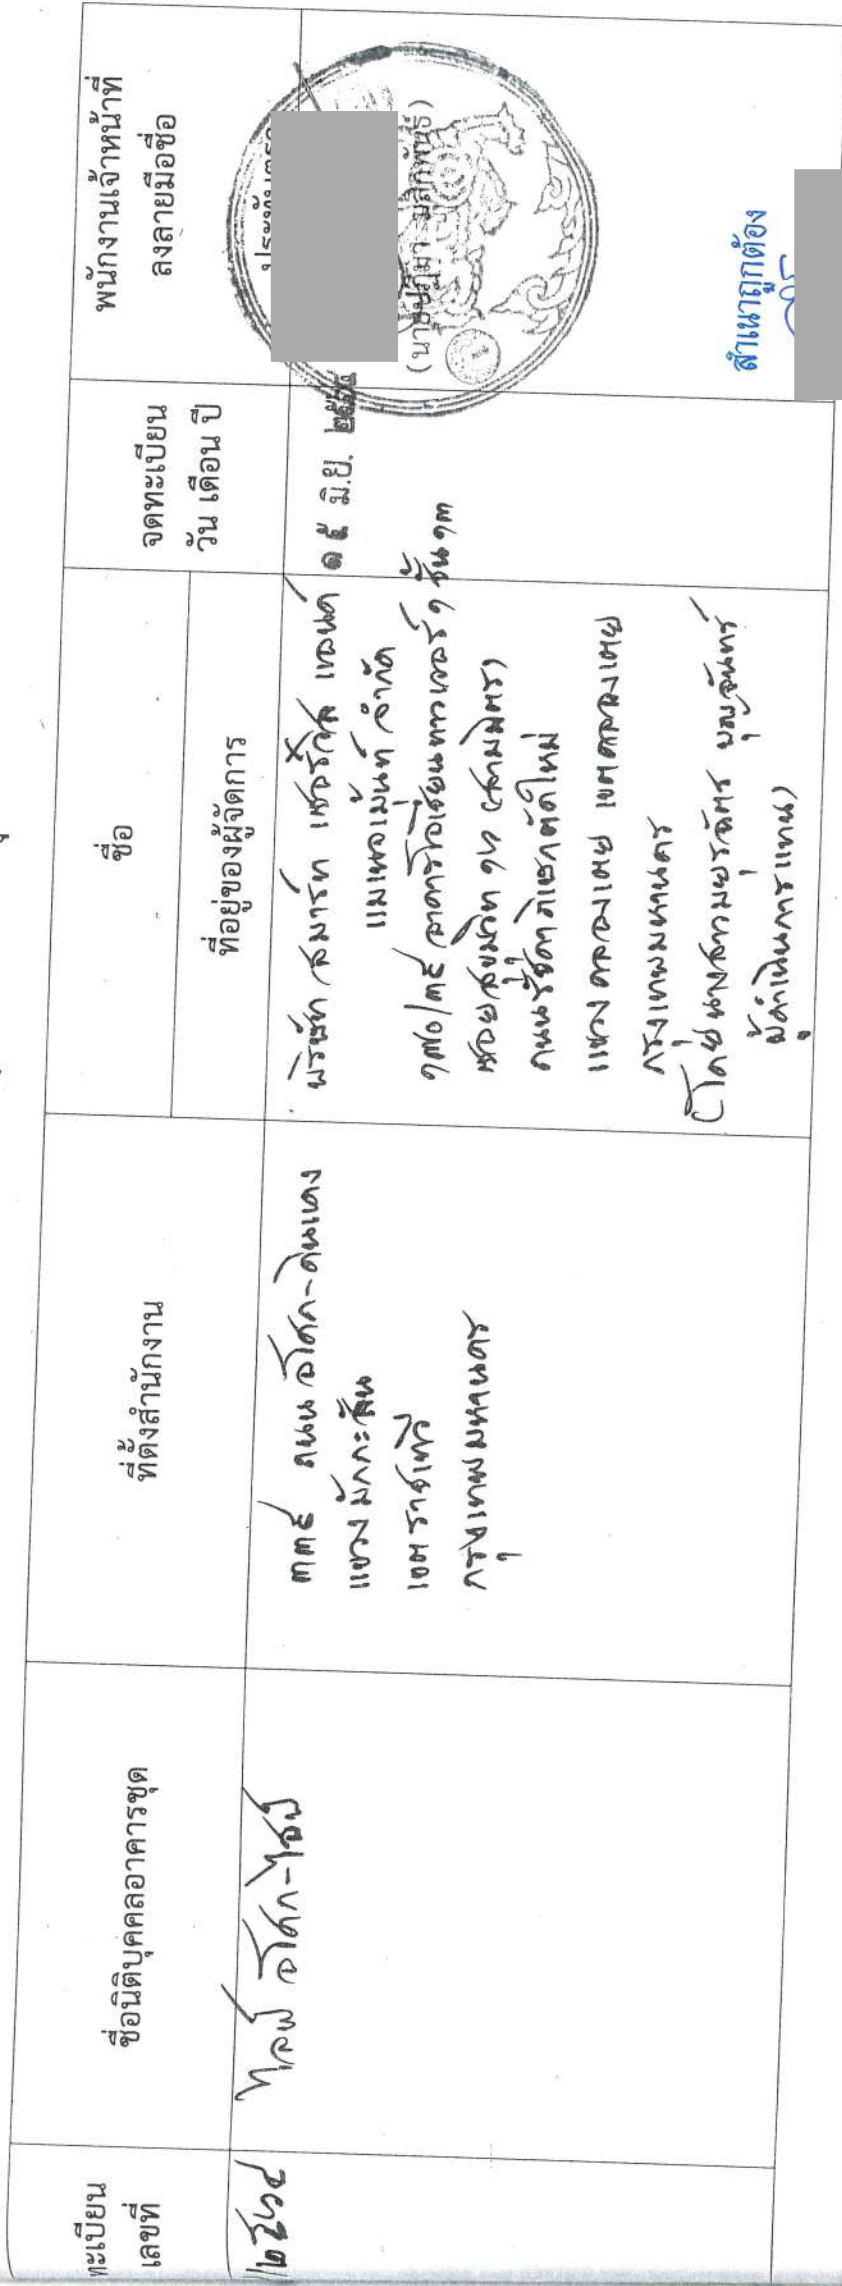 ทะเบียน
เลขที่
ชื่อนิติบุคคลอาคารชุด
ที่ตั้งสำนักงาน
ชื่อ
ที่อยู่ของผู้จัดการ
จดทะเบียน
วัน เดือน ปี
พนักงานเจ้าหน้าที่
ลงลายมือชื่อ
ไลฟ์ อโศก-ไฮป์
๓๓๕ ถนนอโศก-ดินแดง
แขวงมักกะสัน
เขตราชเทวี
กรุงเทพมหานคร
บริษัท สมาร์ท เซอร์วิส แอนด์
แมเนจเม้นท์ จำกัด
๑๗๐/๓๕ อาคารโอเชี่ยนทาวเวอร์ ๑ ชั้น ๑๓
ซอยสุขุมวิท ๑๖ (สามมิตร)
ถนนรัชดาภิเษกตัดใหม่
แขวงคลองเตย เขตคลองเตย
กรุงเทพมหานคร
(โดยนางสาวมยุรฉัตร บุญจันทร์
ผู้ดำเนินการแทน)
๑๕ มิ.ย.
ประทับตรา
สำเนาถูกต้อง